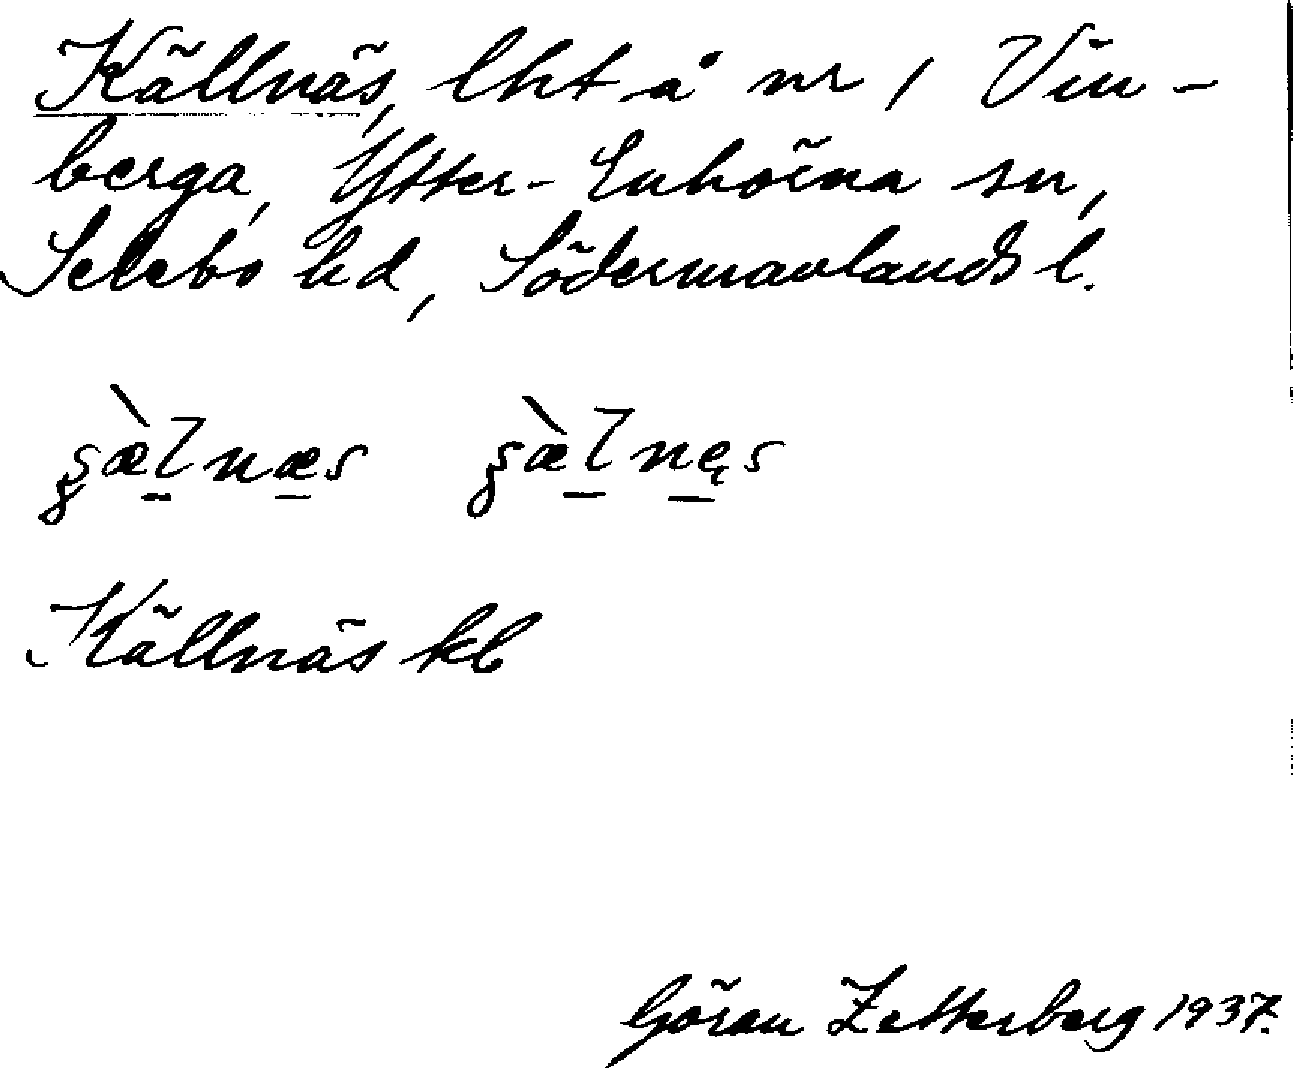 Källnäs, lht å nr 1 Vin-
berga, Ytter-Enhörna sn,
Selebo hd, Södermanlands l.
Källnäs kb
Göran Zetterberg 1937.